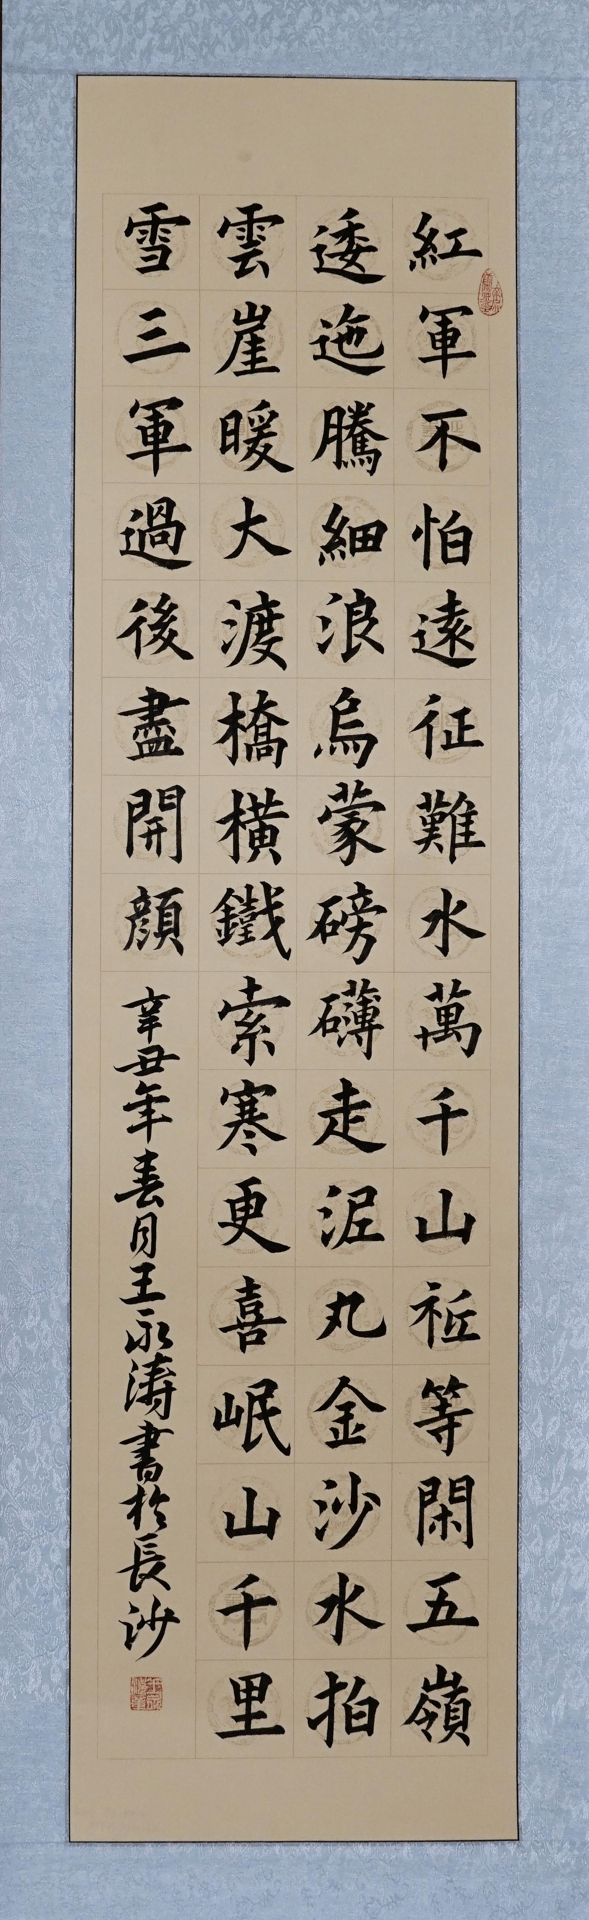 紅軍不怕遠征難水萬千山祗等閑五嶺
逶迤騰細浪烏蒙磅礴走泥丸金沙水拍
雲崖暖大渡橋橫鐵索寒更喜岷山千里
雪三軍過後盡開顔
辛丑年春月王永濤書於長沙